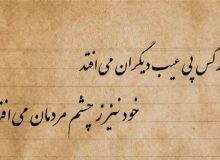 هر کس پی عیب دیگران می افتد
خود نیز ز چشم مردمان می افتد